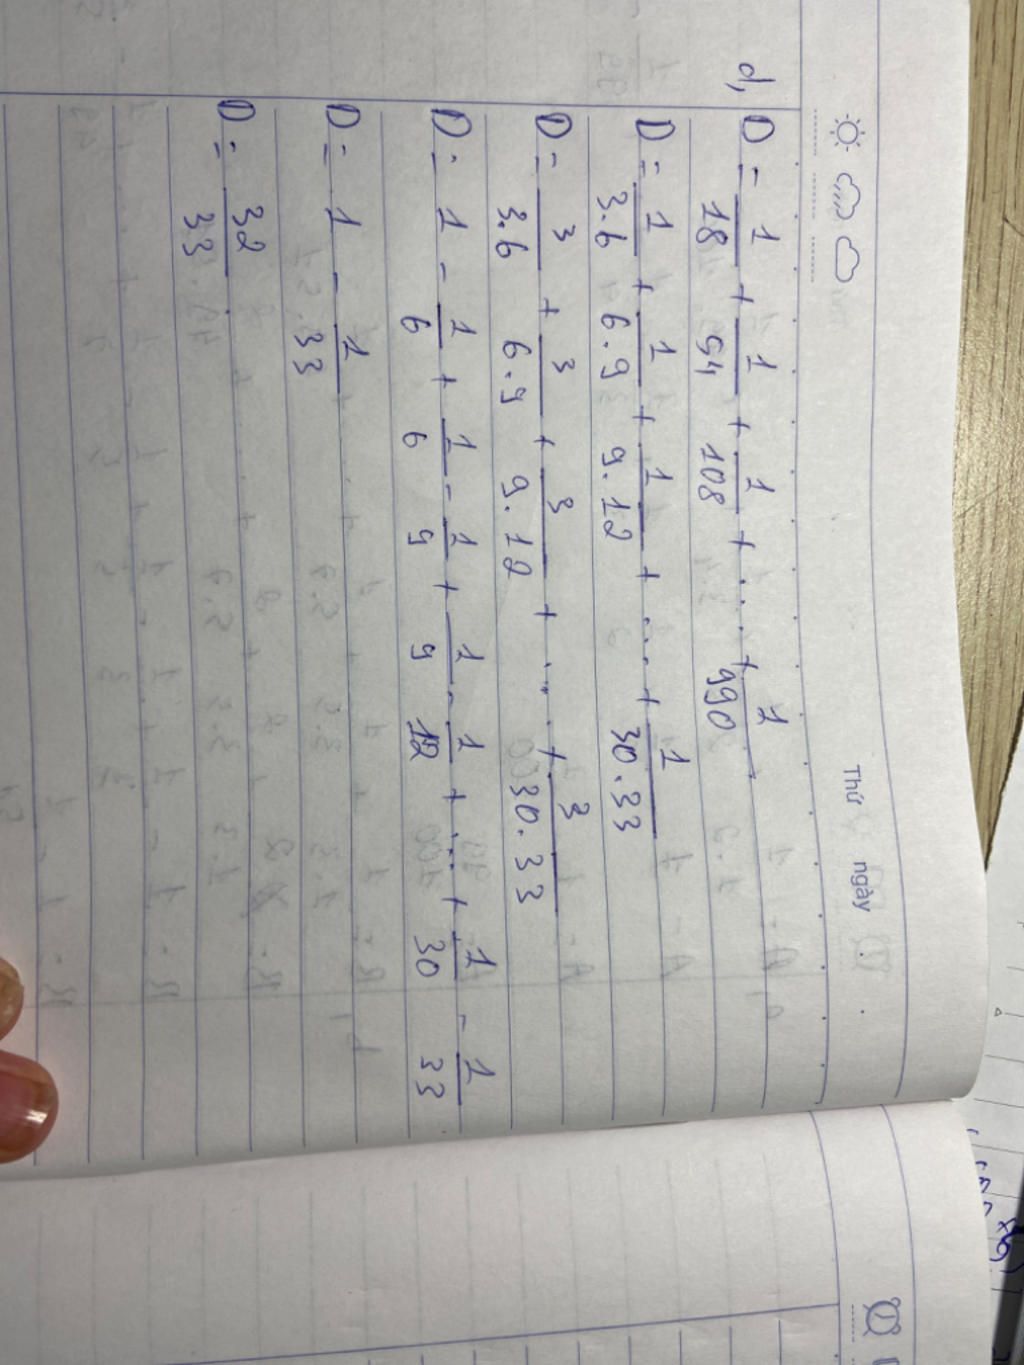 Thứ ngày
d, D = 1/18 + 1/54 + 1/108 + ... + 1/990
D = 1/3.6 + 1/6.9 + 1/9.12 + ... + 1/30.33
D = 3/3.6 + 3/6.9 + 3/9.12 + ... + 3/30.33
D = 1 - 1/6 + 1/6 - 1/9 + 1/9 - 1/12 + ... + 1/30 - 1/33
D = 1 - 1/33
D = 32/33